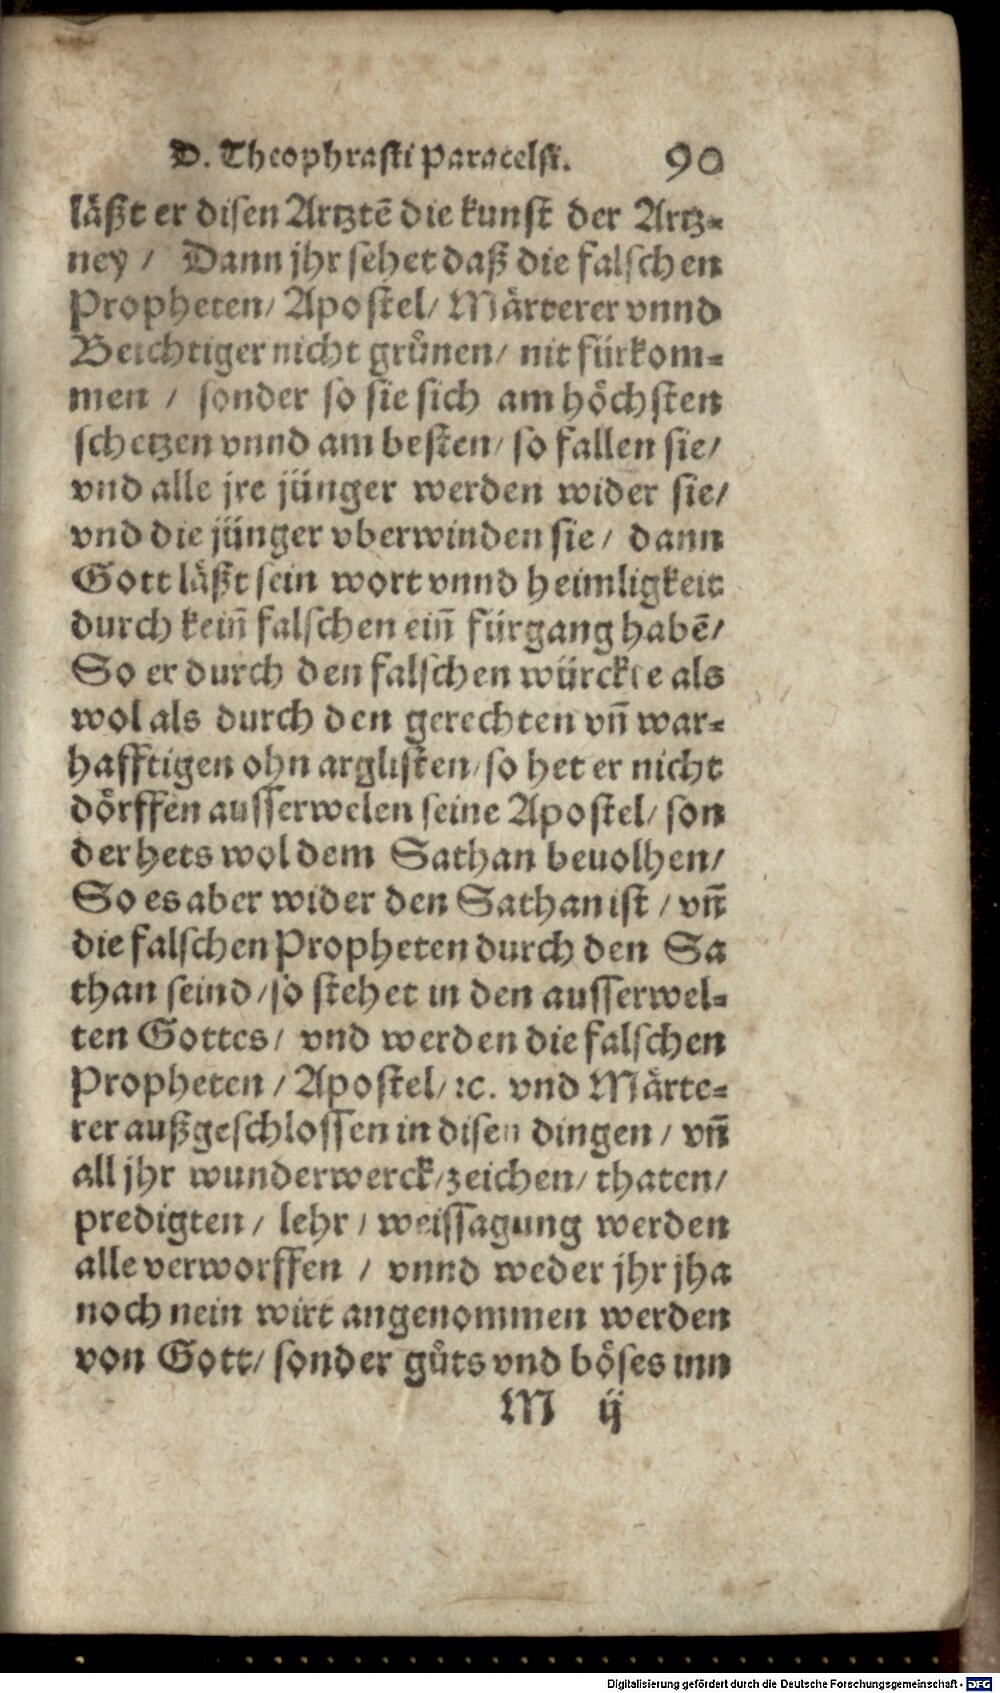 D. Theophrasti Paracelsi. 90
läßt er disen Artztẽ die kunst der Artz-
ney / Dann jhr sehet daß die falschen
Propheten / Apostel / Märterer vnnd
Beichtiger nicht grůnen / nit fürkom-
men / sonder so sie sich am höchsten
schetzen vnnd am besten / so fallen sie /
vnd alle jre jünger werden wider sie /
vnd die jünger vberwinden sie / dann
Gott läßt sein wort vnnd heimligkeit
durch kein̄ falschen ein̄ fürgang habẽ /
So er durch den falschen würckte als
wol als durch den gerechten vn̄ war-
hafftigen ohn arglisten / so het er nicht
dörffen ausserwelen seine Apostel / son
der hets wol dem Sathan beuolhen /
So es aber wider den Sathan ist / vn̄
die falschen Propheten durch den Sa
than seind / so stehet in den ausserwel-
ten Gottes / vnd werden die falschen
Propheten / Apostel / ꝛc. vnd Märte-
rer außgeschlossen in disen dingen / vn̄
all jhr wunderwerck / zeichen / thaten /
predigten / lehr / weissagung werden
alle verworffen / vnnd weder jhr jha
noch nein wirt angenommen werden
von Gott / sonder gůts vnd böses inn
M ij
Digitalisierung gefördert durch die Deutsche Forschungsgemeinschaft - DFG